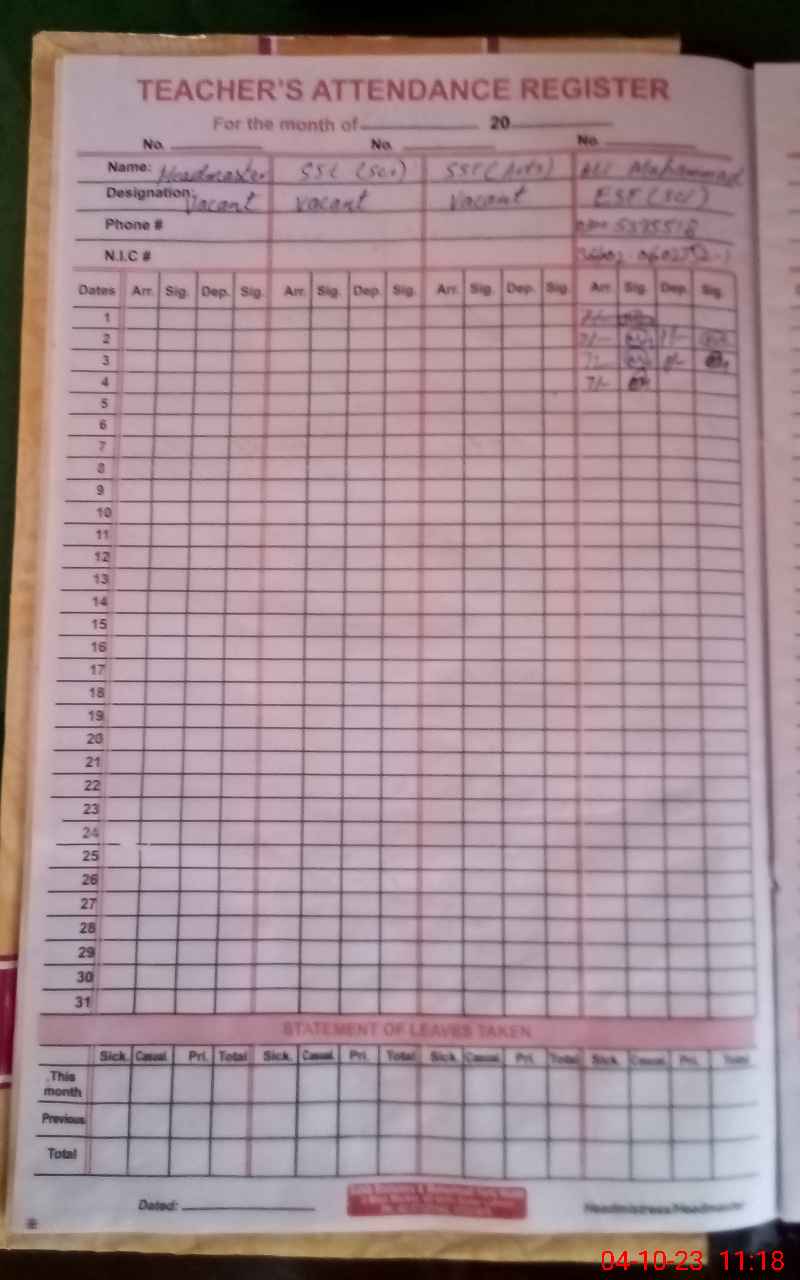 TEACHER'S ATTENDANCE REGISTER
For the month of 20
No. No. No.
Name: Headmaster SSE (Sci) SSE (Arts) Ali Muhammad
Designation: Vacant Vacant Vacant ESE (Sci)
Phone #
N.I.C #
Dates Arr. Sig. Dep. Sig. Arr. Sig. Dep. Sig. Arr. Sig. Dep. Sig. Arr. Sig. Dep. Sig.
1
2
3
4 7/-
5
6
7
8
9
10
11
12
13
14
15
16
17
18
19
20
21
22
23
24
25
26
27
28
29
30
31
STATEMENT OF LEAVES TAKEN
Sick. Casual. Pri. Total Sick. Casual. Pri. Total Sick. Casual. Pri. Total Sick. Casual. Pri. Total
This month
Previous
Total
Dated: Headmistress/Headmaster
04-10-23 11:18